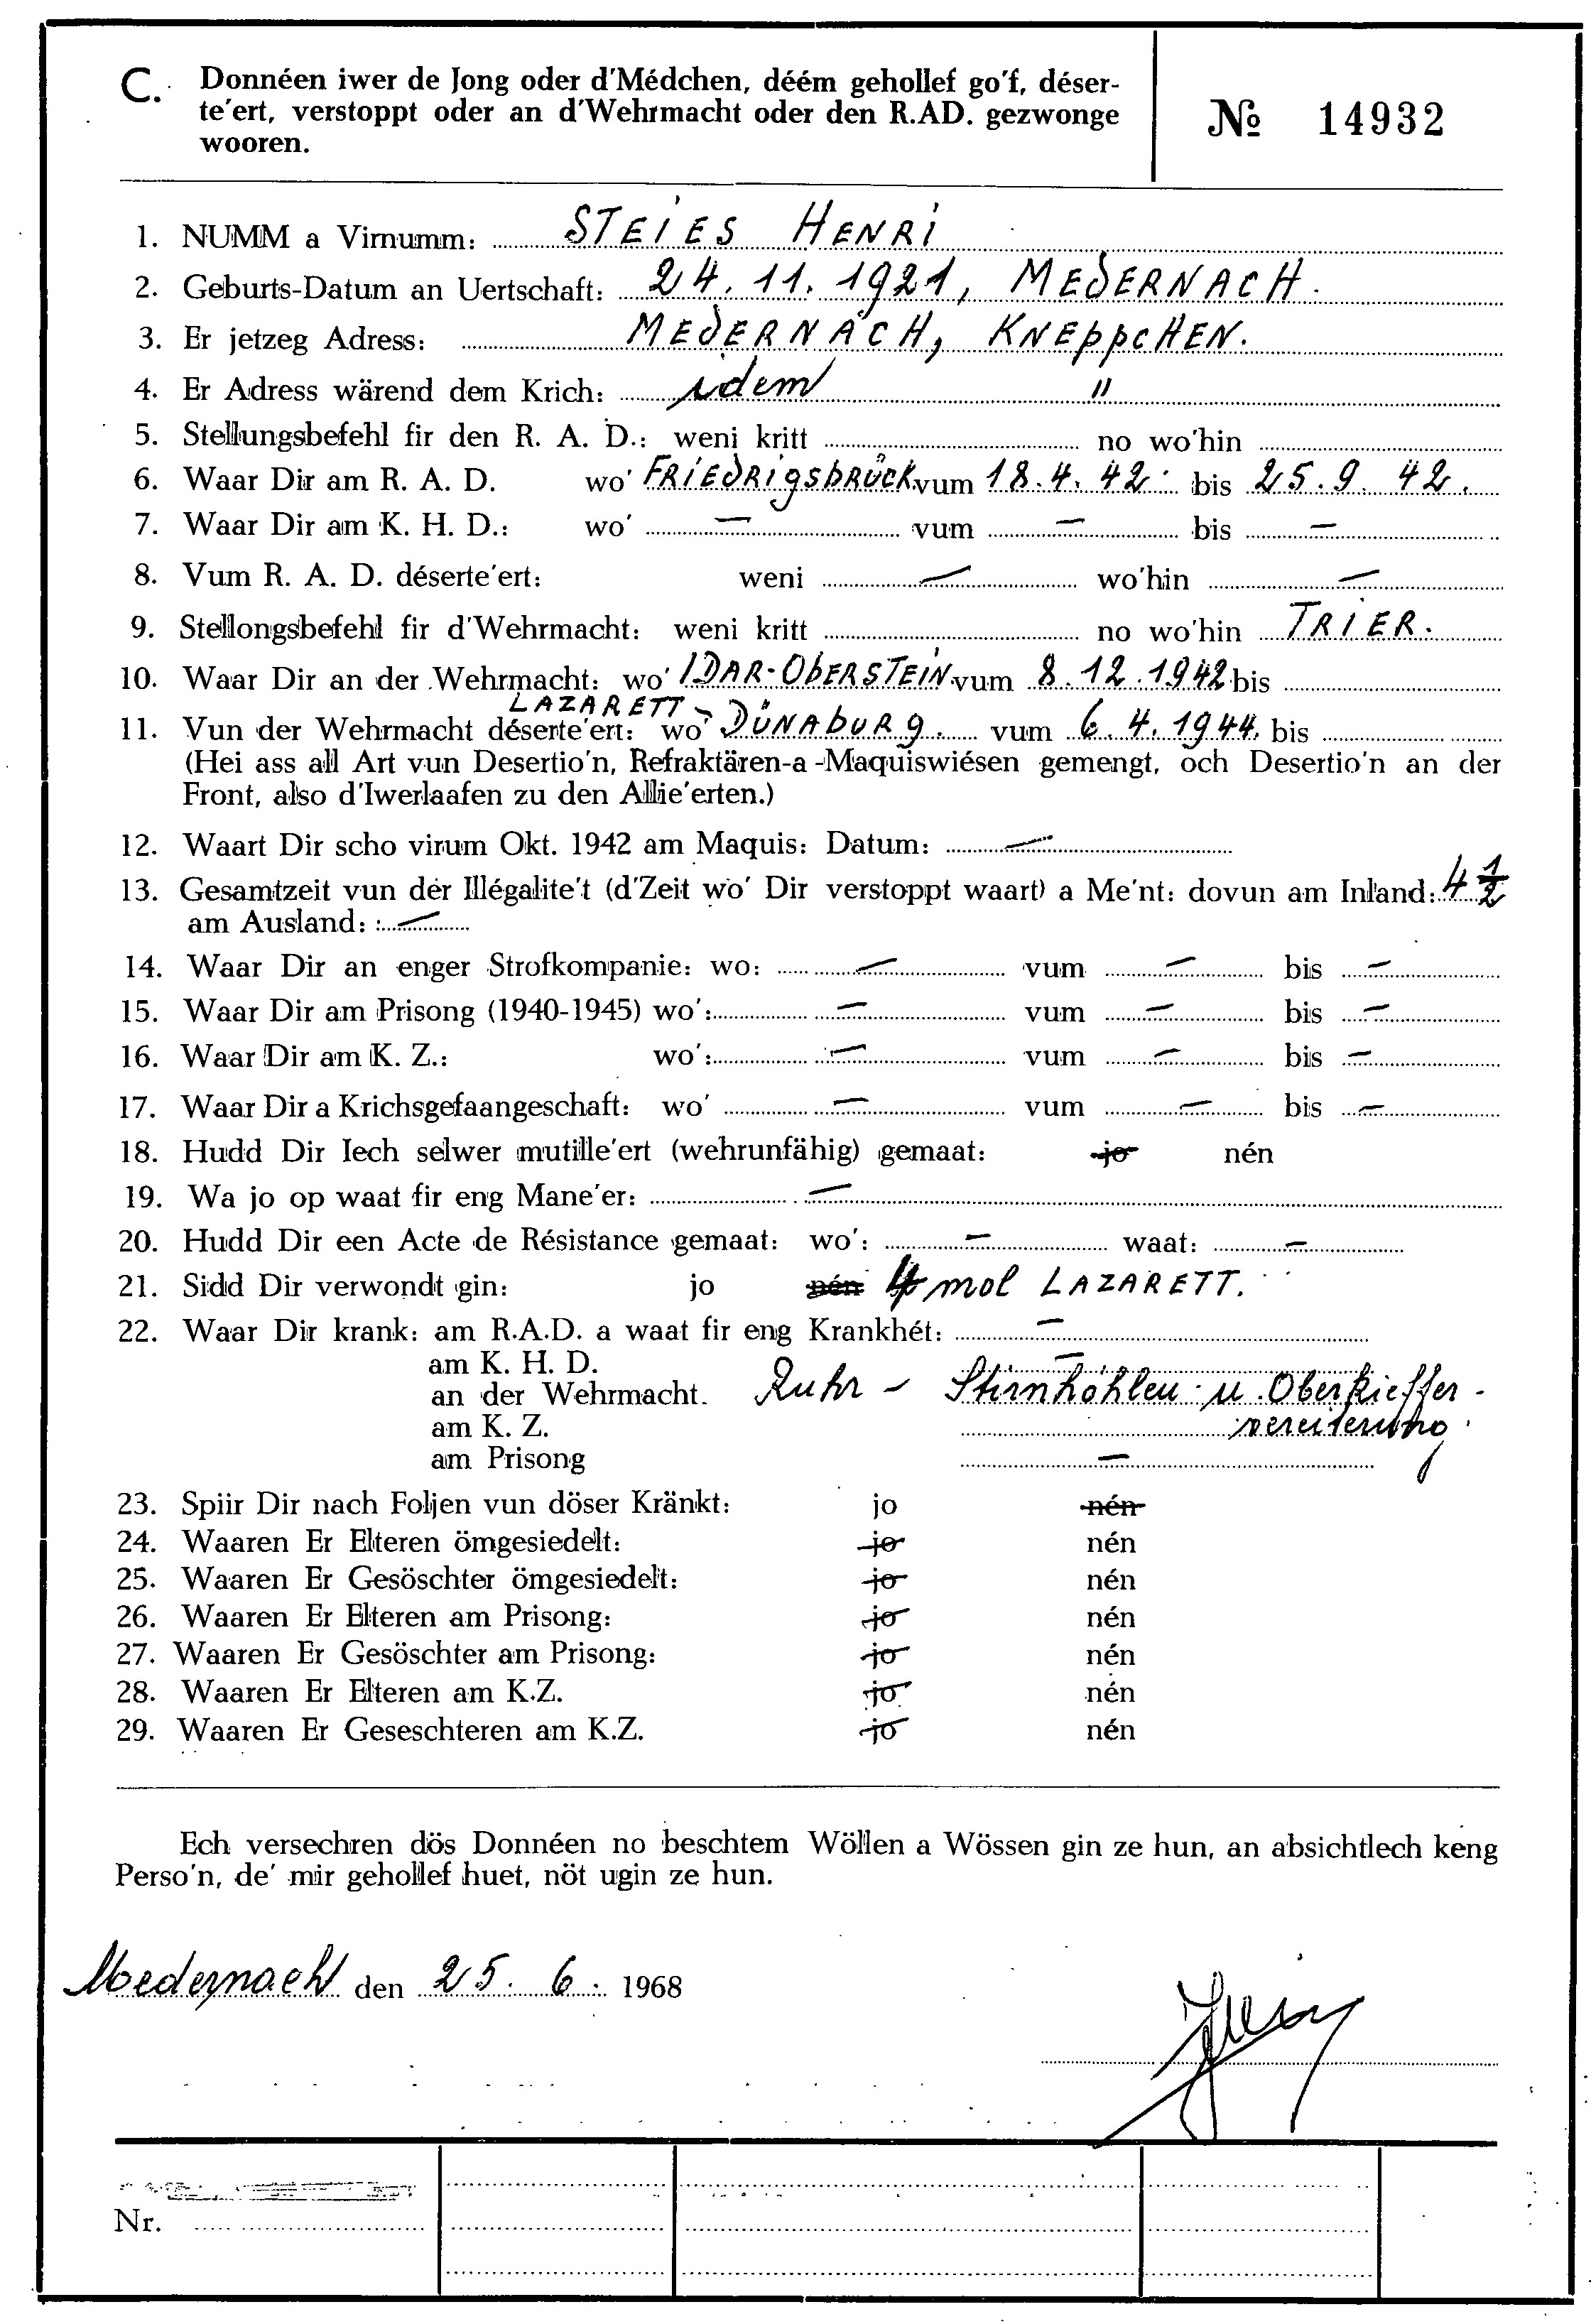 C. Donnéen iwer de Jong oder d'Médchen, déém gehollef go'f, déser-
te'ert, verstoppt oder an d'Wehrmacht oder den R.AD. gezwonge
wooren.
No 14932
1. NUMM a Virnumm: STEIES HENRI
2. Geburts-Datum an Uertschaft: 24.11.1921, MEDERNACH.
3. Er jetzeg Adress: MEDERNACH, KNEPPCHEN.
4. Er Adress wärend dem Krich: idem "
5. Stellungsbefehl fir den R. A. D.: weni kritt no wo'hin
6. Waar Dir am R. A. D. wo' FRIEDRIGSBRÜCK vum 18.4.42 bis 25.9.42.
7. Waar Dir am K. H. D.: wo' — vum — bis —
8. Vum R. A. D. déserte'ert: weni — wo'hin —
9. Stellongsbefehl fir d'Wehrmacht: weni kritt no wo'hin TRIER.
10. Waar Dir an der Wehrmacht: wo' IDAR-OBERSTEIN vum 8.12.1942 bis
LAZARETT –
11. Vun der Wehrmacht déserte'ert: wo' DÜNABURG. vum 6.4.1944. bis
(Hei ass all Art vun Desertio'n, Refraktären-a-Maquiswiésen gemengt, och Desertio'n an der
Front, also d'Iwerlaafen zu den Allie'erten.)
12. Waart Dir scho virum Okt. 1942 am Maquis: Datum: —
13. Gesamtzeit vun der Illégalite't (d'Zeit wo' Dir verstoppt waart) a Me'nt: dovun am Inland: 4 1/2
am Ausland: : —
14. Waar Dir an enger Strofkompanie: wo: — vum — bis —
15. Waar Dir am Prisong (1940-1945) wo': — vum — bis —
16. Waar Dir am K. Z.: wo': — vum — bis —
17. Waar Dir a Krichsgefaangeschaft: wo' — vum — bis —
18. Hudd Dir Iech selwer mutille'ert (wehrunfähig) gemaat: jo nén
19. Wa jo op waat fir eng Mane'er: —
20. Hudd Dir een Acte de Résistance gemaat: wo': — waat: —
21. Sidd Dir verwondt gin: jo nén 4 mol LAZARETT.
22. Waar Dir krank: am R.A.D. a waat fir eng Krankhét: —
am K. H. D. —
an der Wehrmacht. Ruhr – Stirnhöhlen- u. Oberkieffer-
am K. Z. vereiterung.
am Prisong —
23. Spiir Dir nach Foljen vun döser Kränkt: jo nén
24. Waaren Er Elteren ömgesiedelt: jo nén
25. Waaren Er Gesöschter ömgesiedelt: jo nén
26. Waaren Er Elteren am Prisong: jo nén
27. Waaren Er Gesöschter am Prisong: jo nén
28. Waaren Er Elteren am K.Z. jo nén
29. Waaren Er Geseschteren am K.Z. jo nén
Ech versechren dös Donnéen no beschtem Wöllen a Wössen gin ze hun, an absichtlech keng
Perso'n, de' mir gehollef huet, nöt ugin ze hun.
Medernach den 25. 6. 1968
Nr.